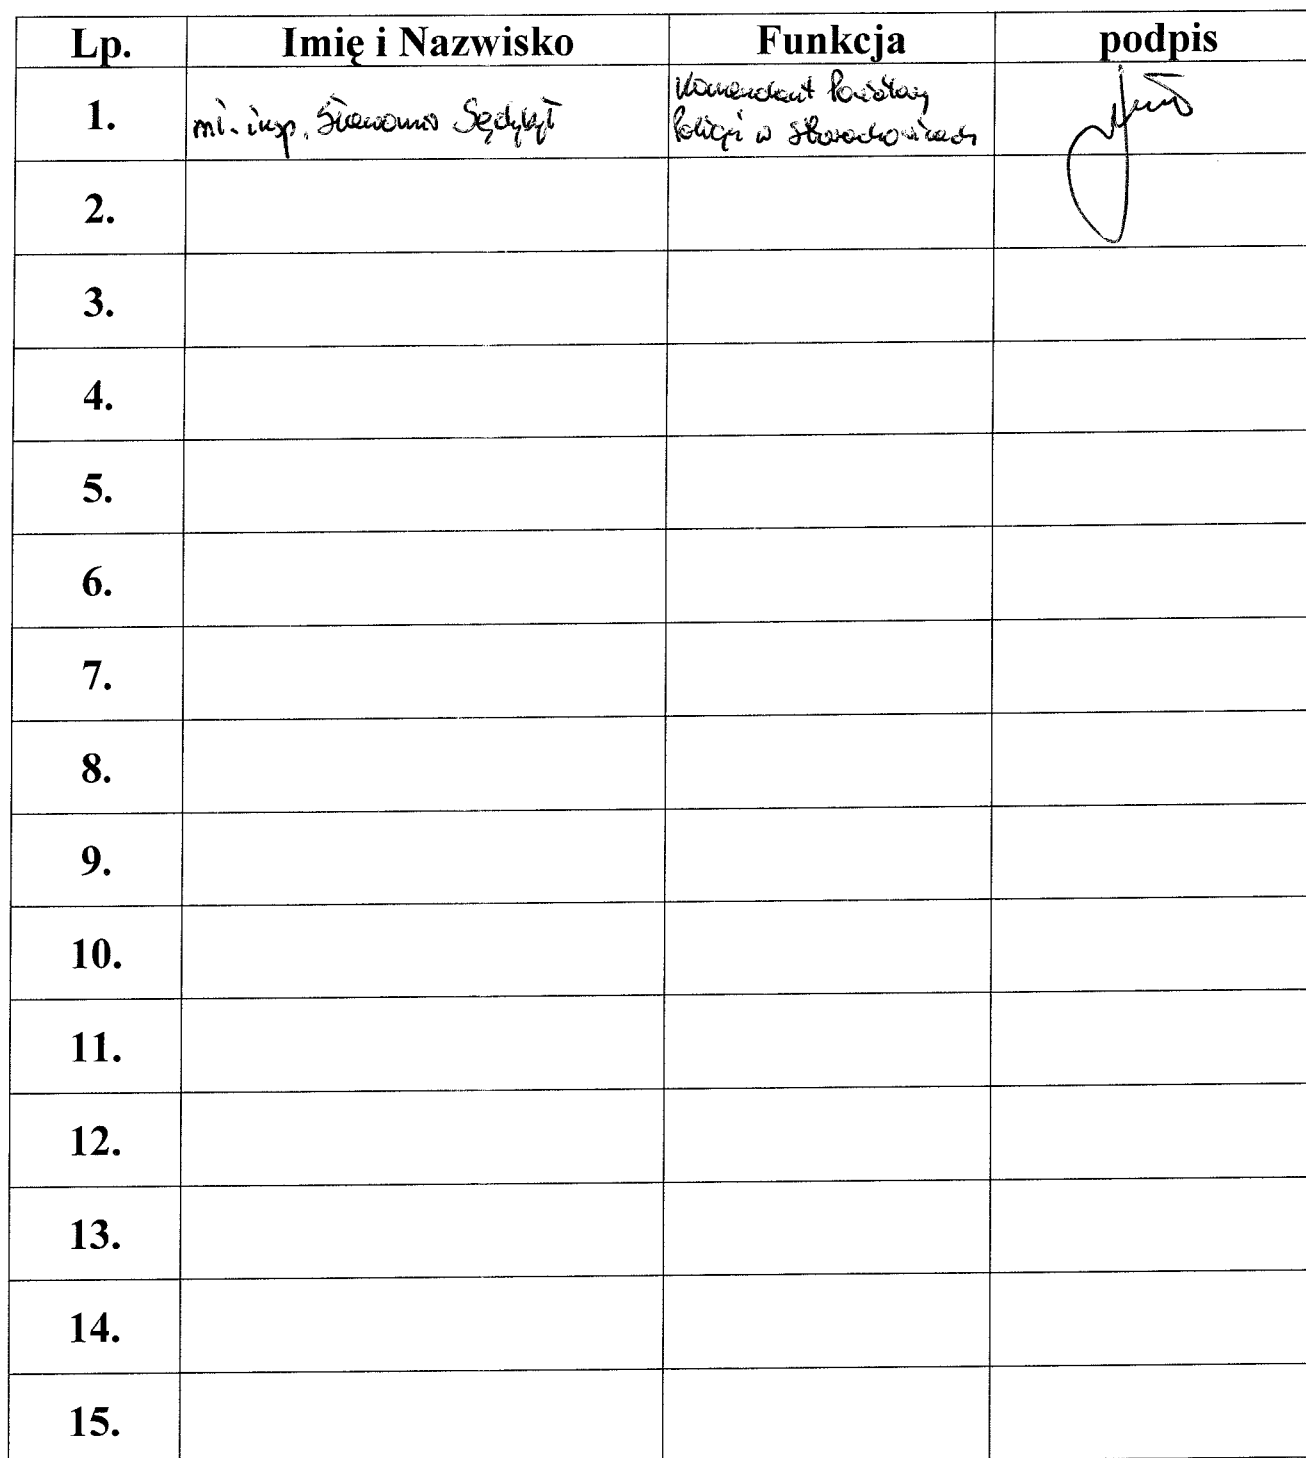 Lp. Imię i Nazwisko Funkcja podpis
1. mł. insp. Sławomir Sędybył Komendant Powiatowy
Policji w Starachowicach
2.
3.
4.
5.
6.
7.
8.
9.
10.
11.
12.
13.
14.
15.